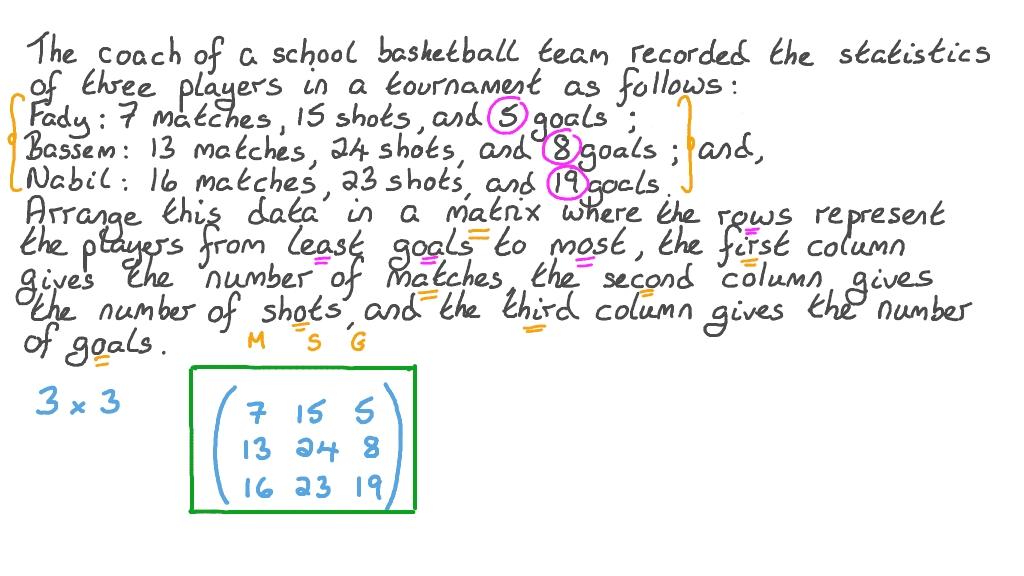 The coach of a school basketball team recorded the statistics
of three players in a tournament as follows:
Fady: 7 matches, 15 shots, and 5 goals;
Bassem: 13 matches, 24 shots, and 8 goals; and,
Nabil: 16 matches, 23 shots, and 19 goals.
Arrange this data in a matrix where the rows represent
the players from least goals to most, the first column
gives the number of matches, the second column gives
the number of shots, and the third column gives the number
of goals.
M S G
3 × 3
7 15 5
13 24 8
16 23 19